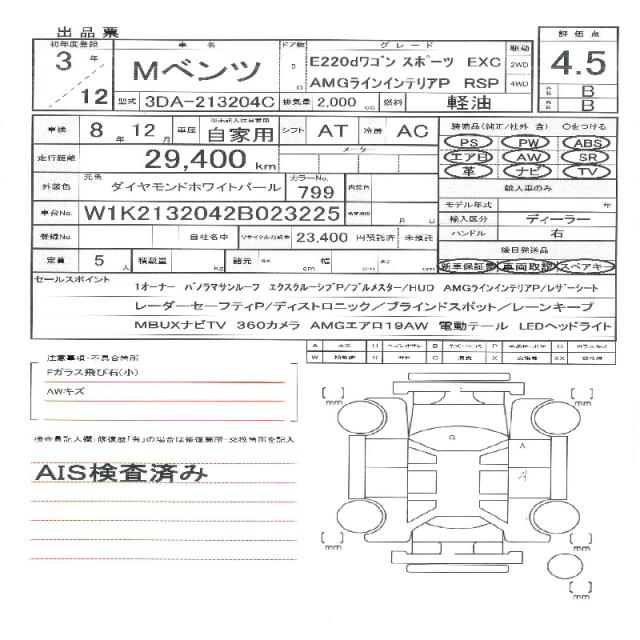 出品票
初年度登録 車名 ドア数 グレード 駆動 評価点
3年 Mベンツ 5 E220dワゴン スポーツ EXC 2WD 4.5
/12 D AMGラインインテリアP RSP 4WD
型式 3DA-213204C 排気量 2,000 cc 燃料 軽油
B
B
車検 8年12月 車歴 ※未記入は自家用 自家用 シフト AT 冷房 AC
装備品(純正/社外 含) 〇をつける
PS PW ABS
走行距離 29,400 km メーター
エアB AW SR
革 ナビ TV
外装色 元色 ダイヤモンドホワイトパール カラーNo. 799 内装色
輸入車のみ
モデル年式 年
車台No. W1K2132042B023225 月 日
輸入区分 ディーラー
登録No. 自社名中 リサイクル預託金 23,400 円預託済 未預託
ハンドル 右
後日発送品
定員 5人 積載量 kg 諸元 長さ cm 幅 cm 高さ cm
新車保証書 車両取説 スペアキー
セールスポイント
1オーナー パノラマサンルーフ エクスクルーシブP/ブルメスター/HUD AMGラインインテリアP/レザーシート
レーダーセーフティP/ディストロニック/ブラインドスポット/レーンキープ
MBUXナビTV 360カメラ AMGエアロ19AW 電動テール LEDヘッドライト
注意事項・不具合箇所
Fガラス飛び石(小)
AWキズ
検査員記入欄:修復歴「有」の場合は修復箇所・交換箇所を記入
AIS検査済み
A キズ U B P G ガラスキズ
W S サビ C 腐食 X XX
mm
mm
G
A
mm
mm
mm